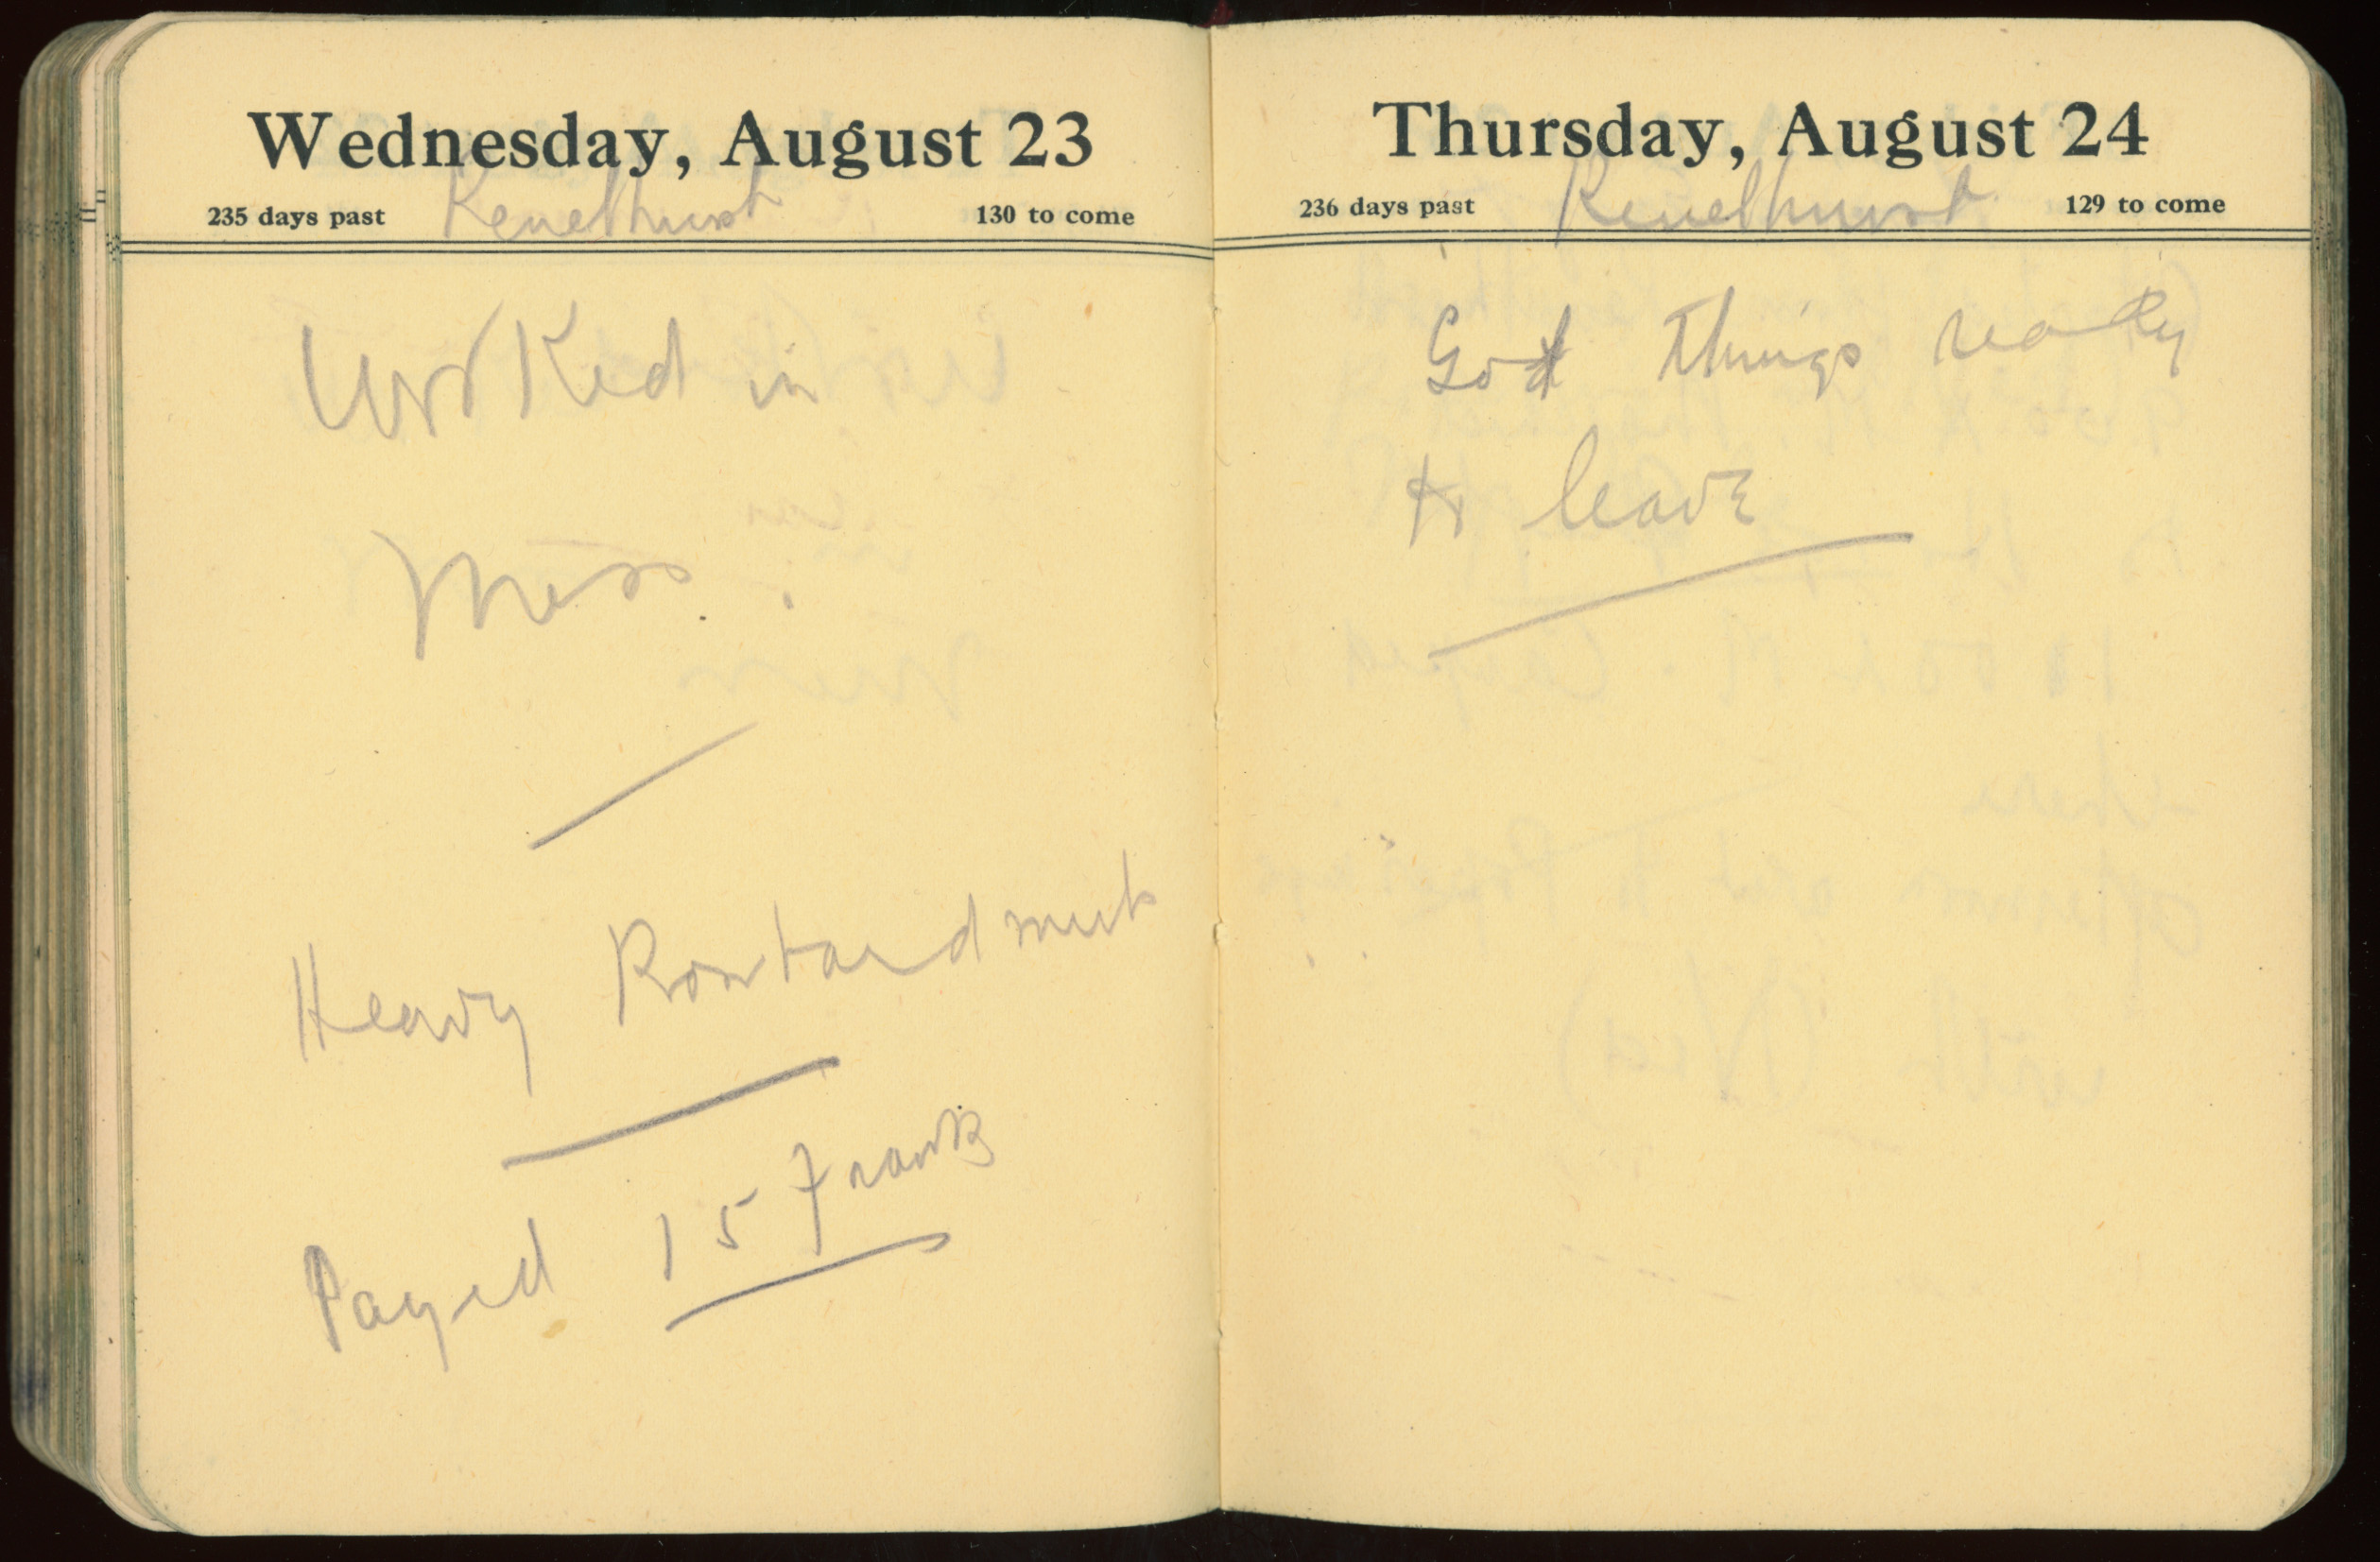 Wednesday, August 23
235 days past Kenelhurst 130 to come
Worked in
Mess.
Heavy Bombardment
Payed 15 Franks
Thursday, August 24
236 days past Kenelhurst 129 to come
Got Things ready
to leave